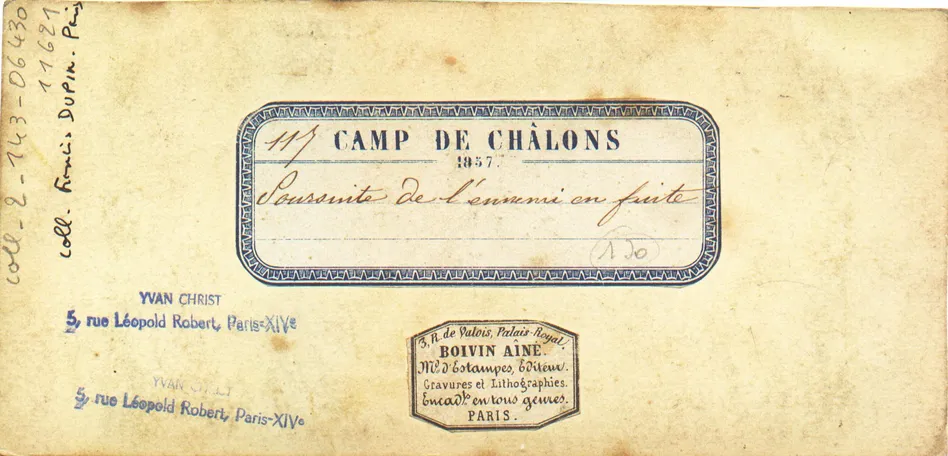 coll_2-143-06430
11621
coll. Francis DUPIN. Paris
117 CAMP DE CHÂLONS
1857.
Poursuite de l'ennemi en fuite
130
YVAN CHRIST
5, rue Léopold Robert, Paris-XIVe
YVAN CHRIST
5, rue Léopold Robert, Paris-XIVe
3, R. de Valois, Palais-Royal,
BOIVIN AÎNÉ.
Md. d'Estampes, Editeur.
Gravures et Lithographies.
Encadts. en tous genres.
PARIS.